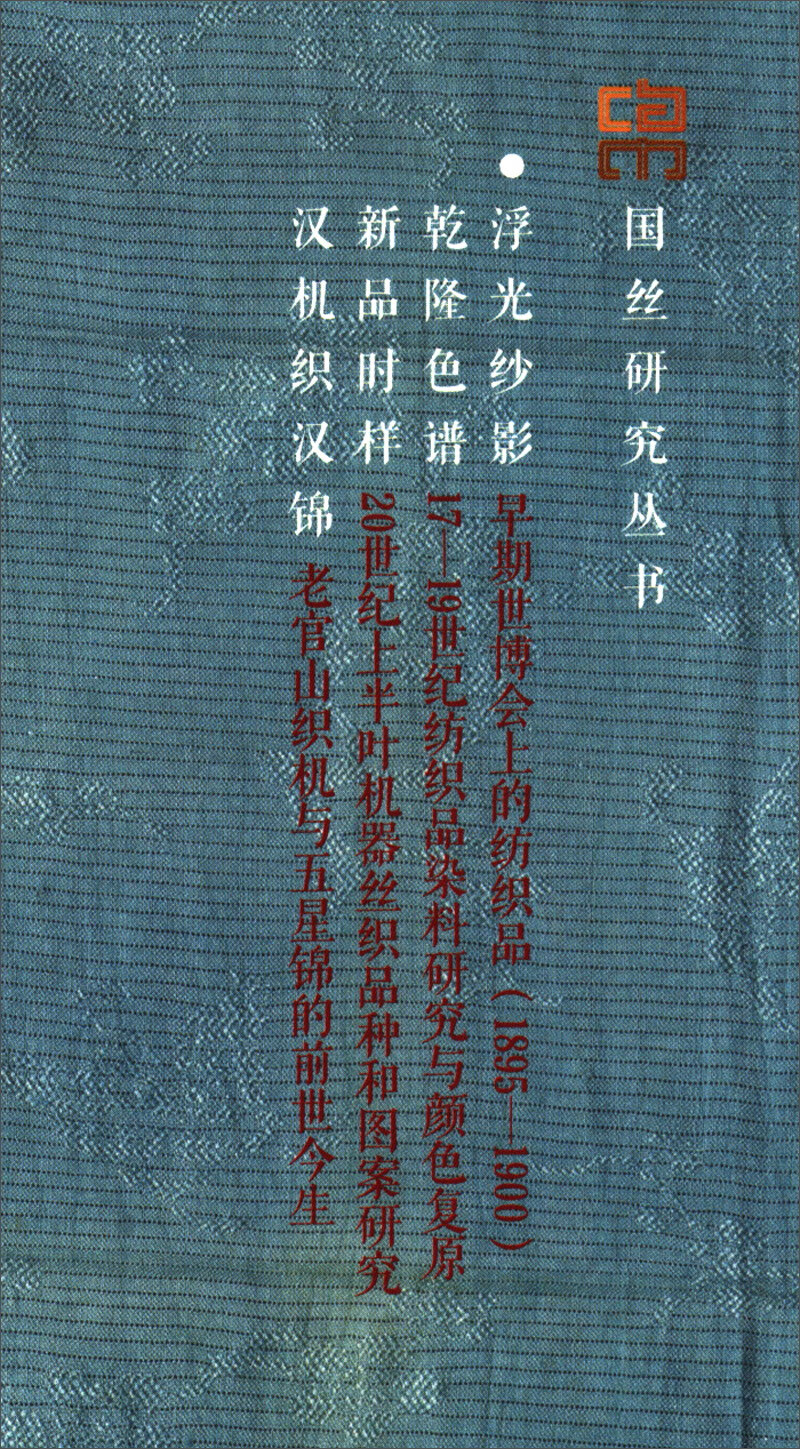 国丝研究丛书
浮光纱影 早期世博会上的纺织品（1895—1900）
乾隆色谱 17—19世纪纺织品染料研究与颜色复原
新品时样 20世纪上半叶机器丝织品种和图案研究
汉机织汉锦 老官山织机与五星锦的前世今生